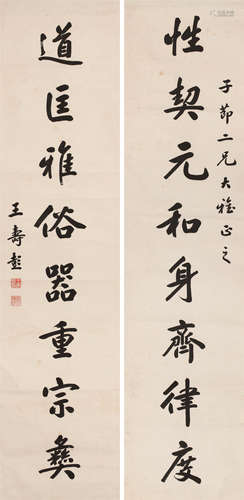 子節二兄大雅正之
性契元和身齊律度
道匡雅俗器重宗彝
王壽彭